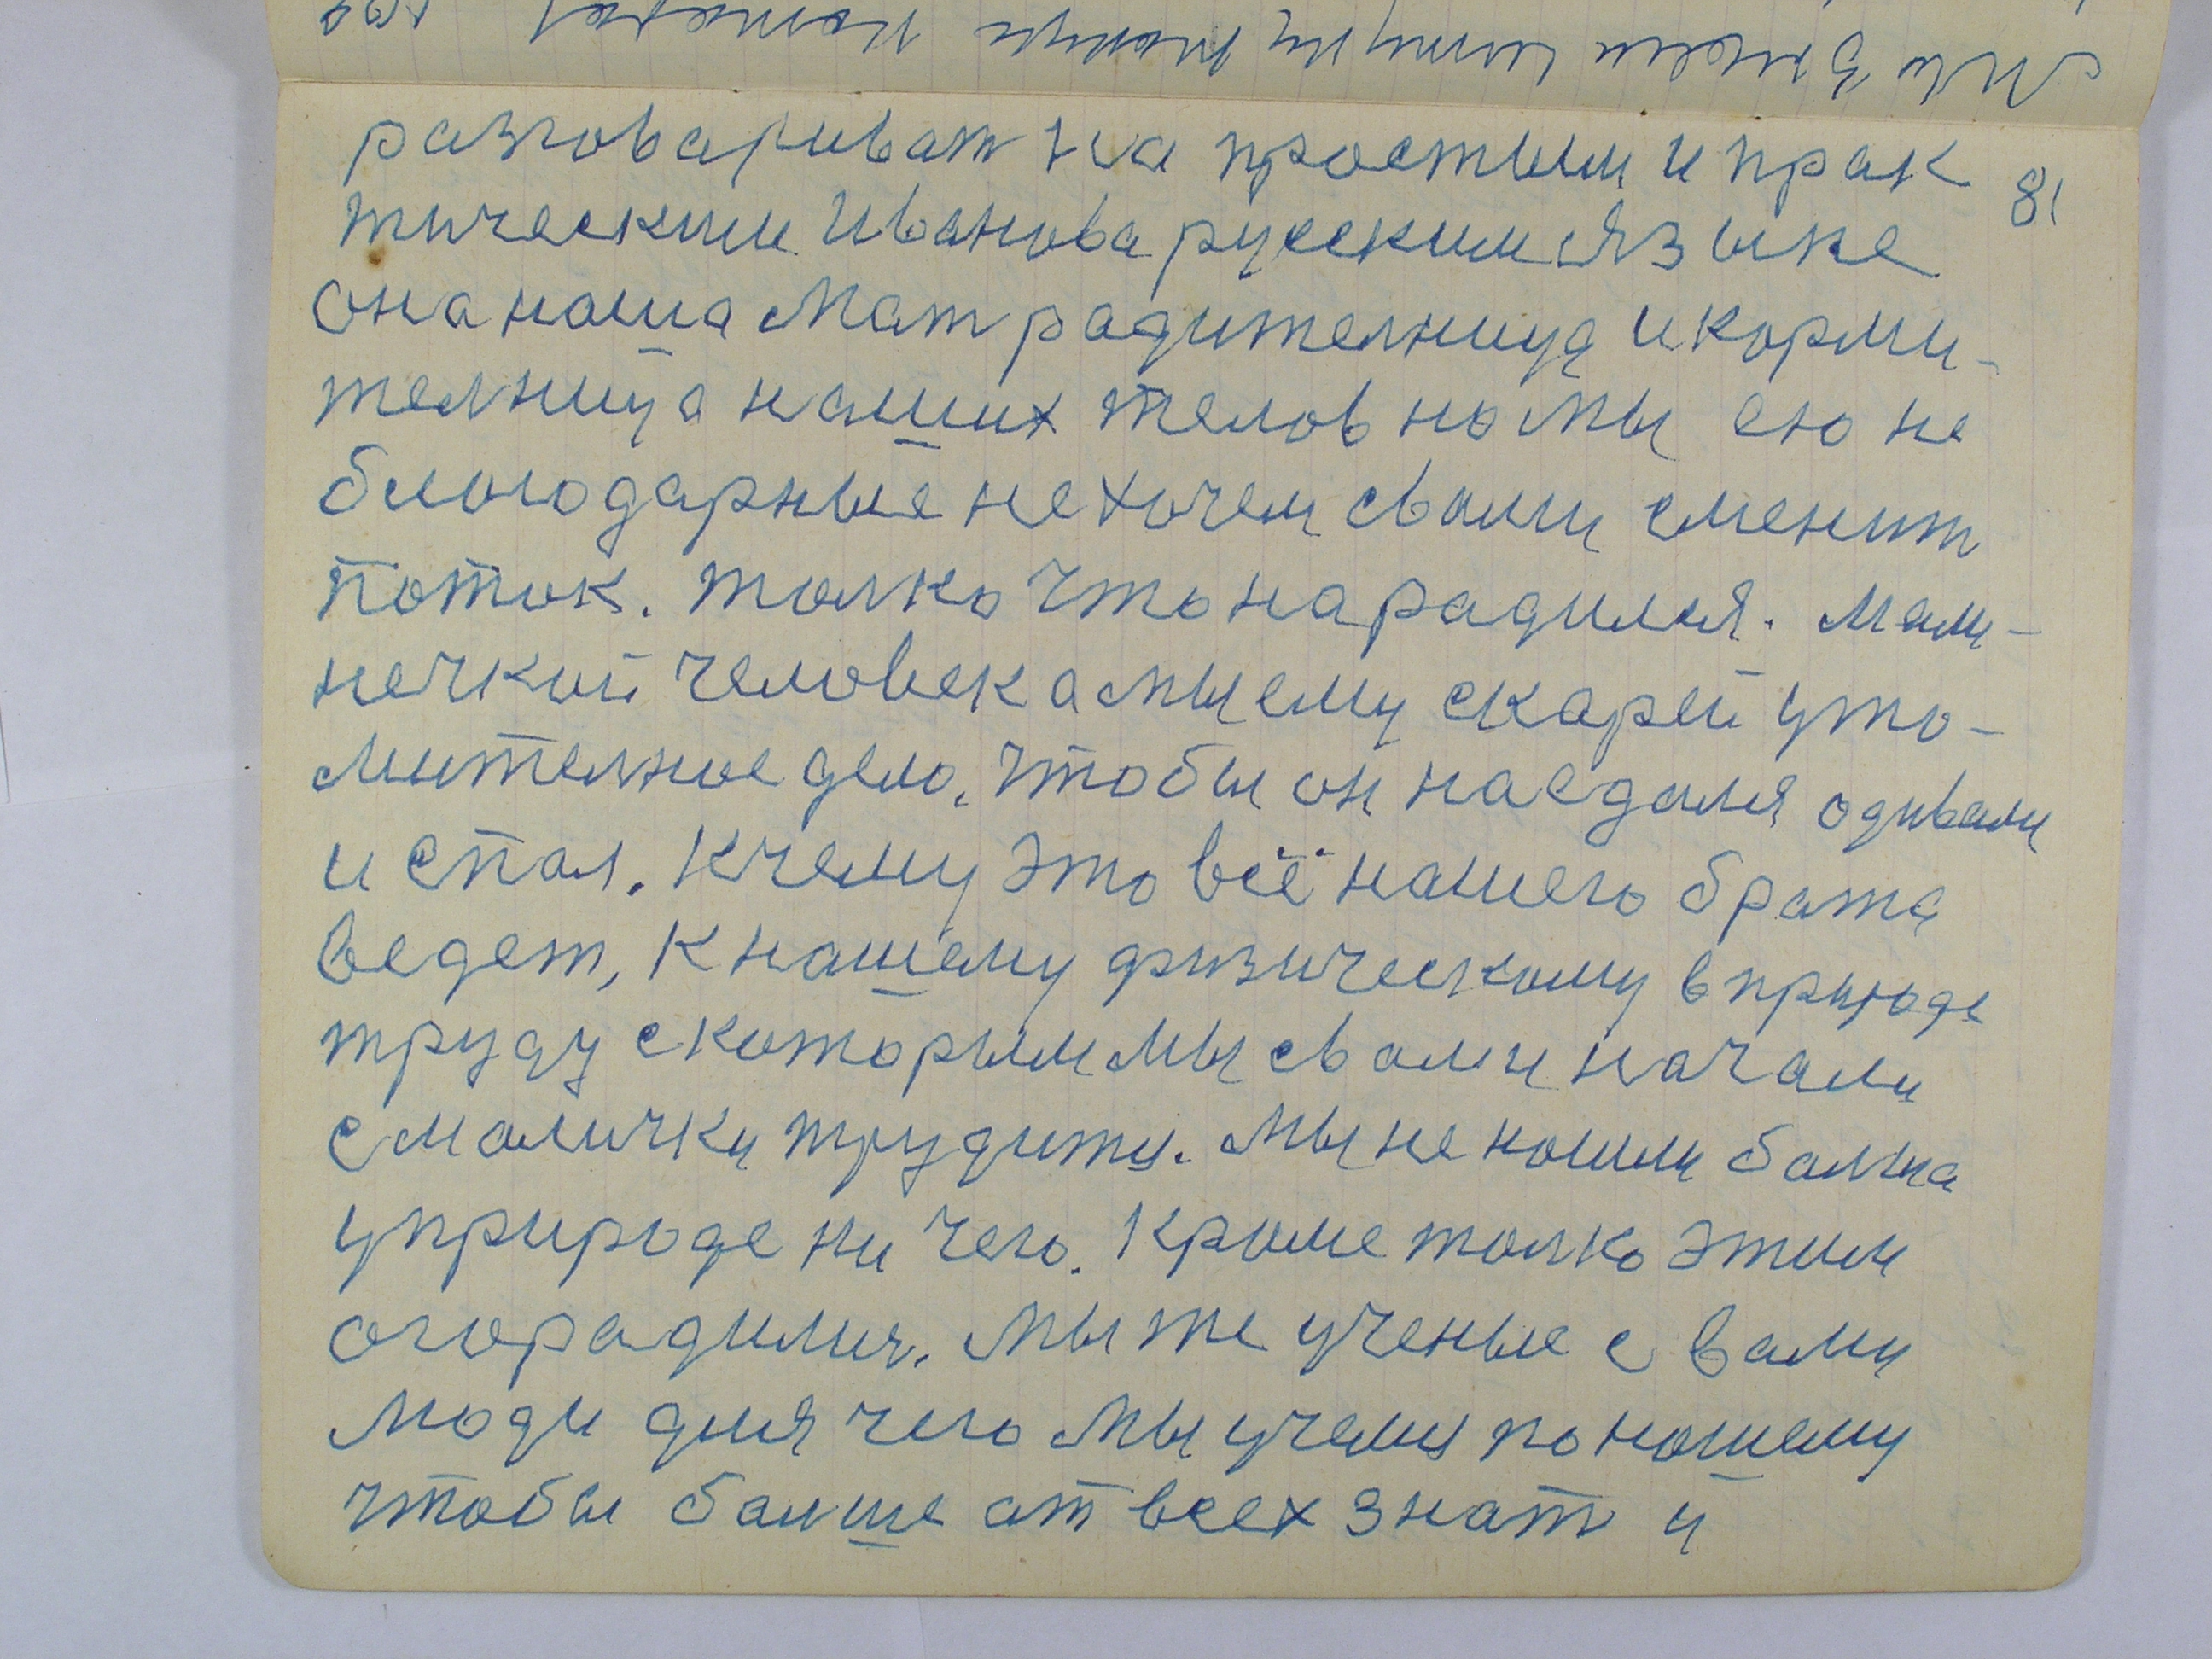 разговариват на простым и прак
тическим Иванова русским языке
она наша Мат радителница и корми-
телница наших телов но мы ею не
блогодарные не хочем свами сменит
поток. толко что нарадился. мали-
нечкой человек а мы ему скарей уто-
мителное дело. чтобы он наедался одивали
и спал. К чему это всё нашего брата
ведет, К нашему физическому в природе
труду скоторым мы свами начали
с маличку трудится. Мы не нашли балша
у природе ни чего. Кроме толко этим
огорадились. Мы же ученые с вами
люди для чего мы учемся по нашему
чтобы балше от всех знат и
81